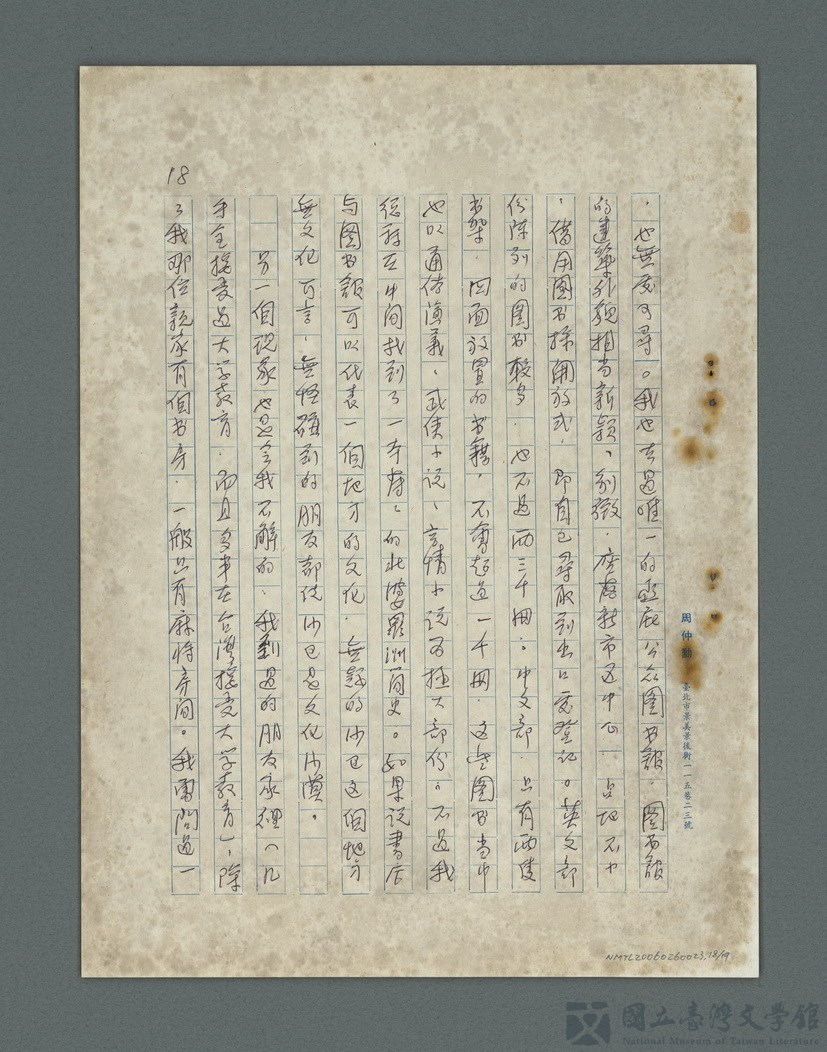 ，也無處可尋。我也去過唯一的亞庇公众圖书館，圖书館
的建築外貌相当新穎、別緻，座落新市區中心，占地不少
，借用圖书採開放式，即自己尋取到出口處登记。英文部
份陈列的圖书較多，也不過两三千冊；中文部，只有两隻
书架，四面放置的书籍，不會超過一千冊，这些圖书当中
也以通俗演義、武俠小说、言情小说为極大部份。不過我
總算在中间找到了一本薄薄的北婆羅洲简史。如果说書店
与圖书館可以代表一個地方的文化，無疑的沙巴这個地方
無文化可言，無怪碰到的朋友都说沙巴是文化沙漠。
另一個現象也是令我不解的，我到過的朋友家裡（几
乎全接受过大学教育，而且多半在台灣接受大学教育），除
了我那位親家有個书房，一般只有麻将房间。我曾問過一
18
周仲
臺北市景美景後街一一五巷二三號
NMTL20060260023,18/19
國立臺灣文學館
National Museum of Taiwan Literature